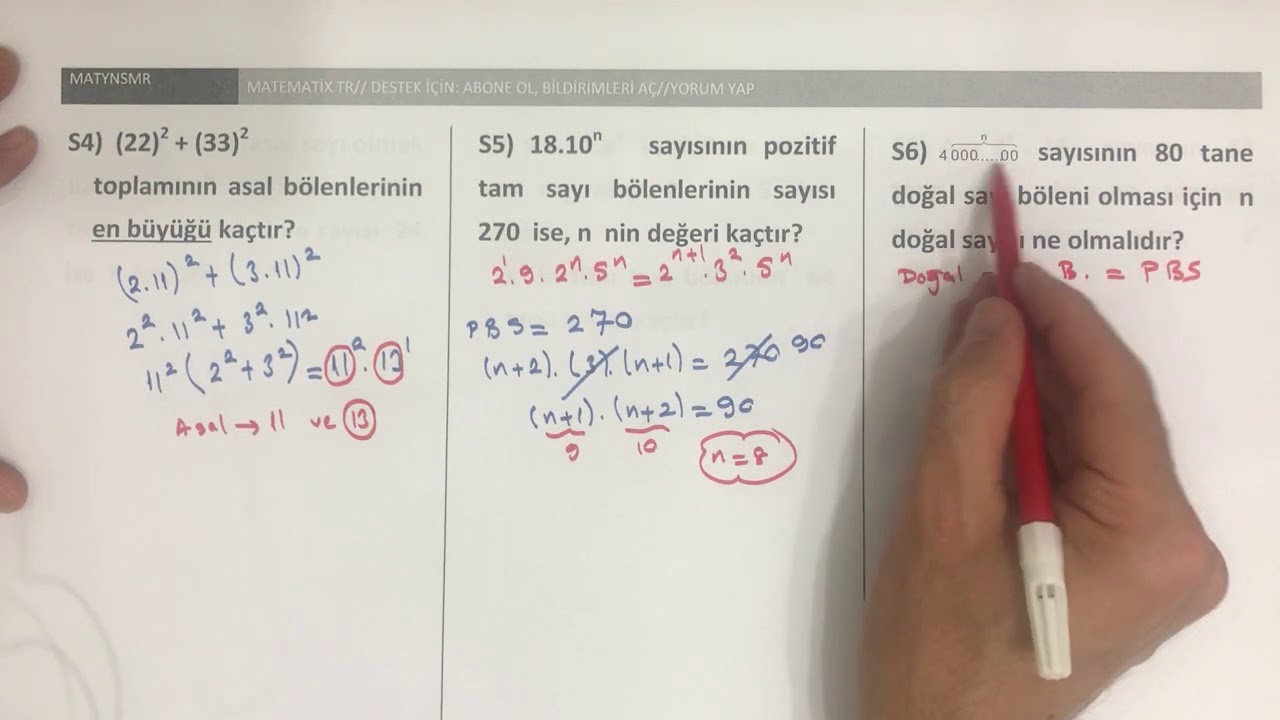 MATYNSMR
MATEMATİX TR// DESTEK İÇİN: ABONE OL, BİLDİRİMLERİ AÇ//YORUM YAP
S4) (22)² + (33)²
toplamının asal bölenlerinin
en büyüğü kaçtır?
(2.11)² + (3.11)²
2² . 11² + 3² . 11²
11² (2² + 3²) = 11² . 13¹
Asal → 11 ve 13
S5) 18.10ⁿ sayısının pozitif
tam sayı bölenlerinin sayısı
270 ise, n nin değeri kaçtır?
2¹ . 9 . 2ⁿ . 5ⁿ = 2ⁿ⁺¹ 3² . 5ⁿ
PBS = 270
(n+2) . (3) . (n+1) = 270 90
(n+1) . (n+2) = 90
9 10
n = 8
n
S6) 4000.....00 sayısının 80 tane
doğal böleni olması için n
doğal ne olmalıdır?
Doğal B. = PBS